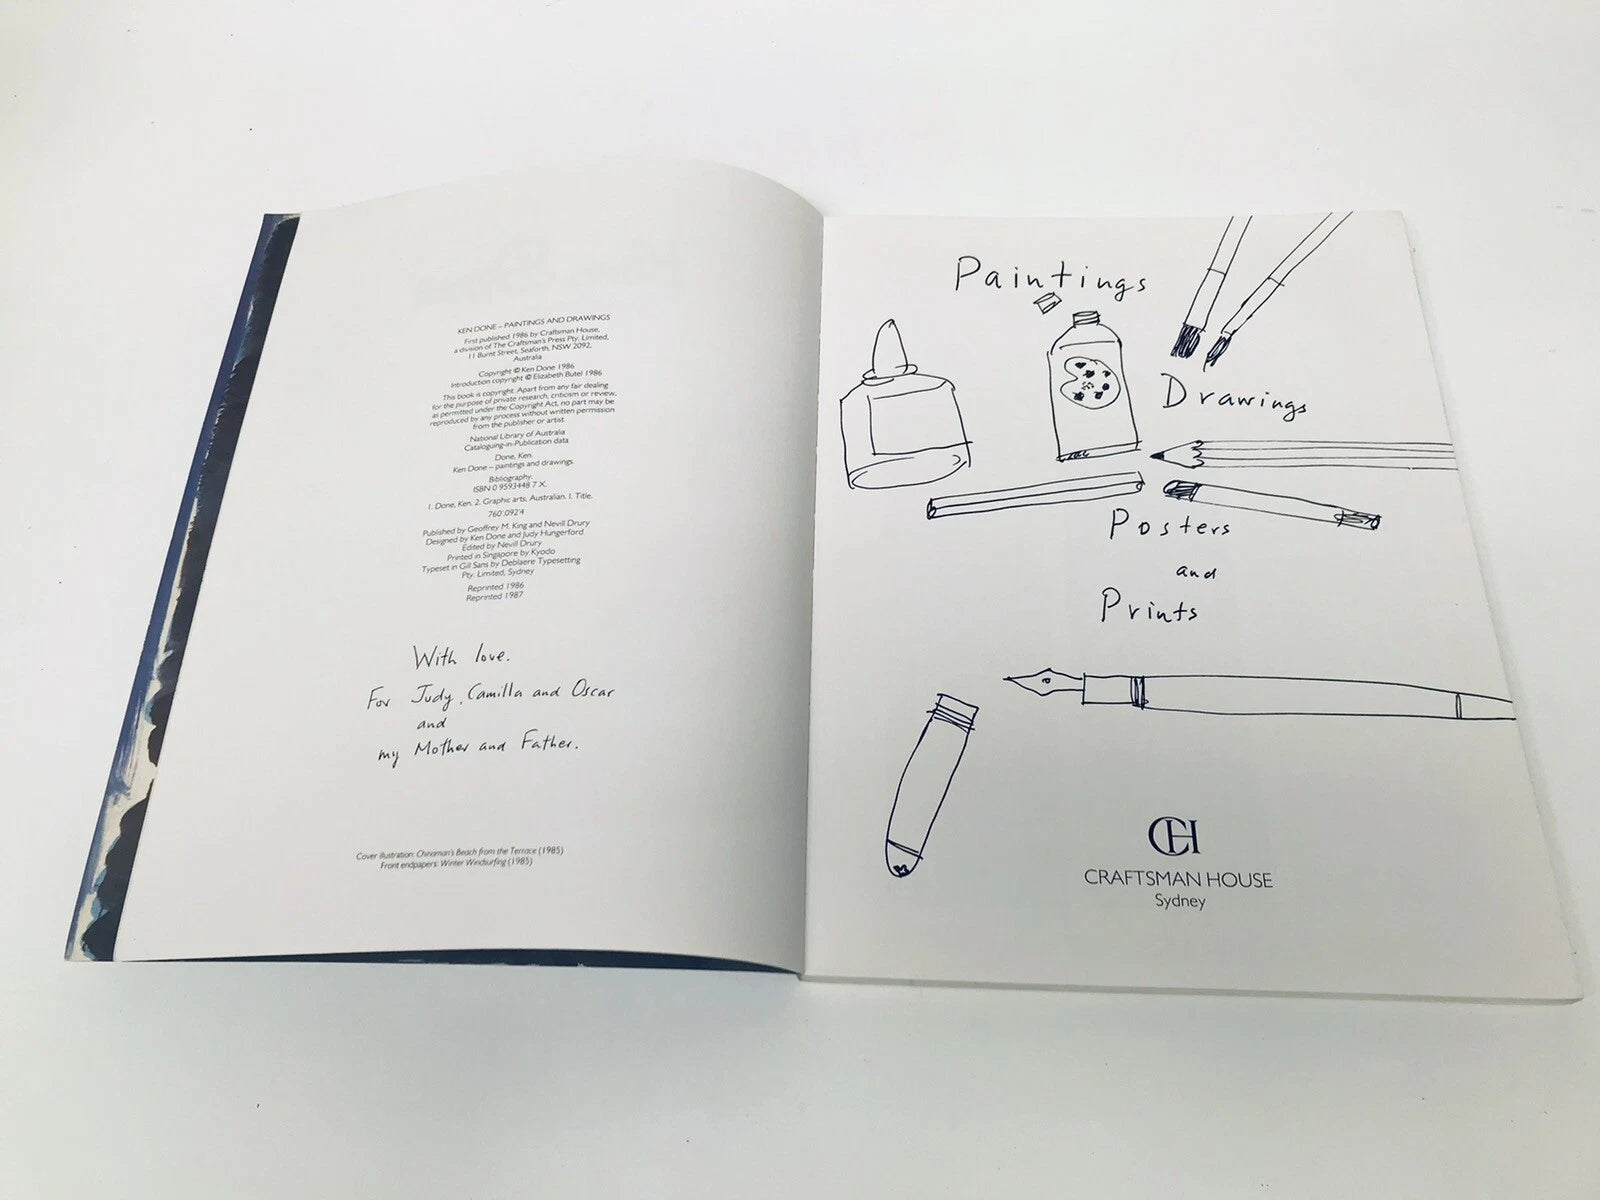 KEN DONE – PAINTINGS AND DRAWINGS
First published 1986 by Craftsman House,
a division of The Craftsman's Press Pty. Limited,
11 Burnt Street, Seaforth, NSW 2092,
Australia
Copyright © Ken Done 1986
Introduction copyright © Elizabeth Butel 1986
This book is copyright. Apart from any fair dealing
for the purpose of private research, criticism or review,
as permitted under the Copyright Act, no part may be
reproduced by any process without written permission
from the publisher or artist.
National Library of Australia
Cataloguing-in-Publication data
Done, Ken.
Ken Done – paintings and drawings.
Bibliography.
ISBN 0 9593448 7 X.
1. Done, Ken. 2. Graphic arts, Australian. I. Title.
760'.092'4
Published by Geoffrey M. King and Nevill Drury
Designed by Ken Done and Judy Hungerford
Edited by Nevill Drury
Printed in Singapore by Kyodo
Typeset in Gill Sans by Deblaere Typesetting
Pty. Limited, Sydney
Reprinted 1986
Reprinted 1987
With love.
For Judy, Camilla and Oscar
and
my Mother and Father.
Cover illustration: Chinaman's Beach from the Terrace (1985)
Front endpapers: Winter Windsurfing (1985)
Paintings
Drawings
Posters
and
Prints
CH
CRAFTSMAN HOUSE
Sydney